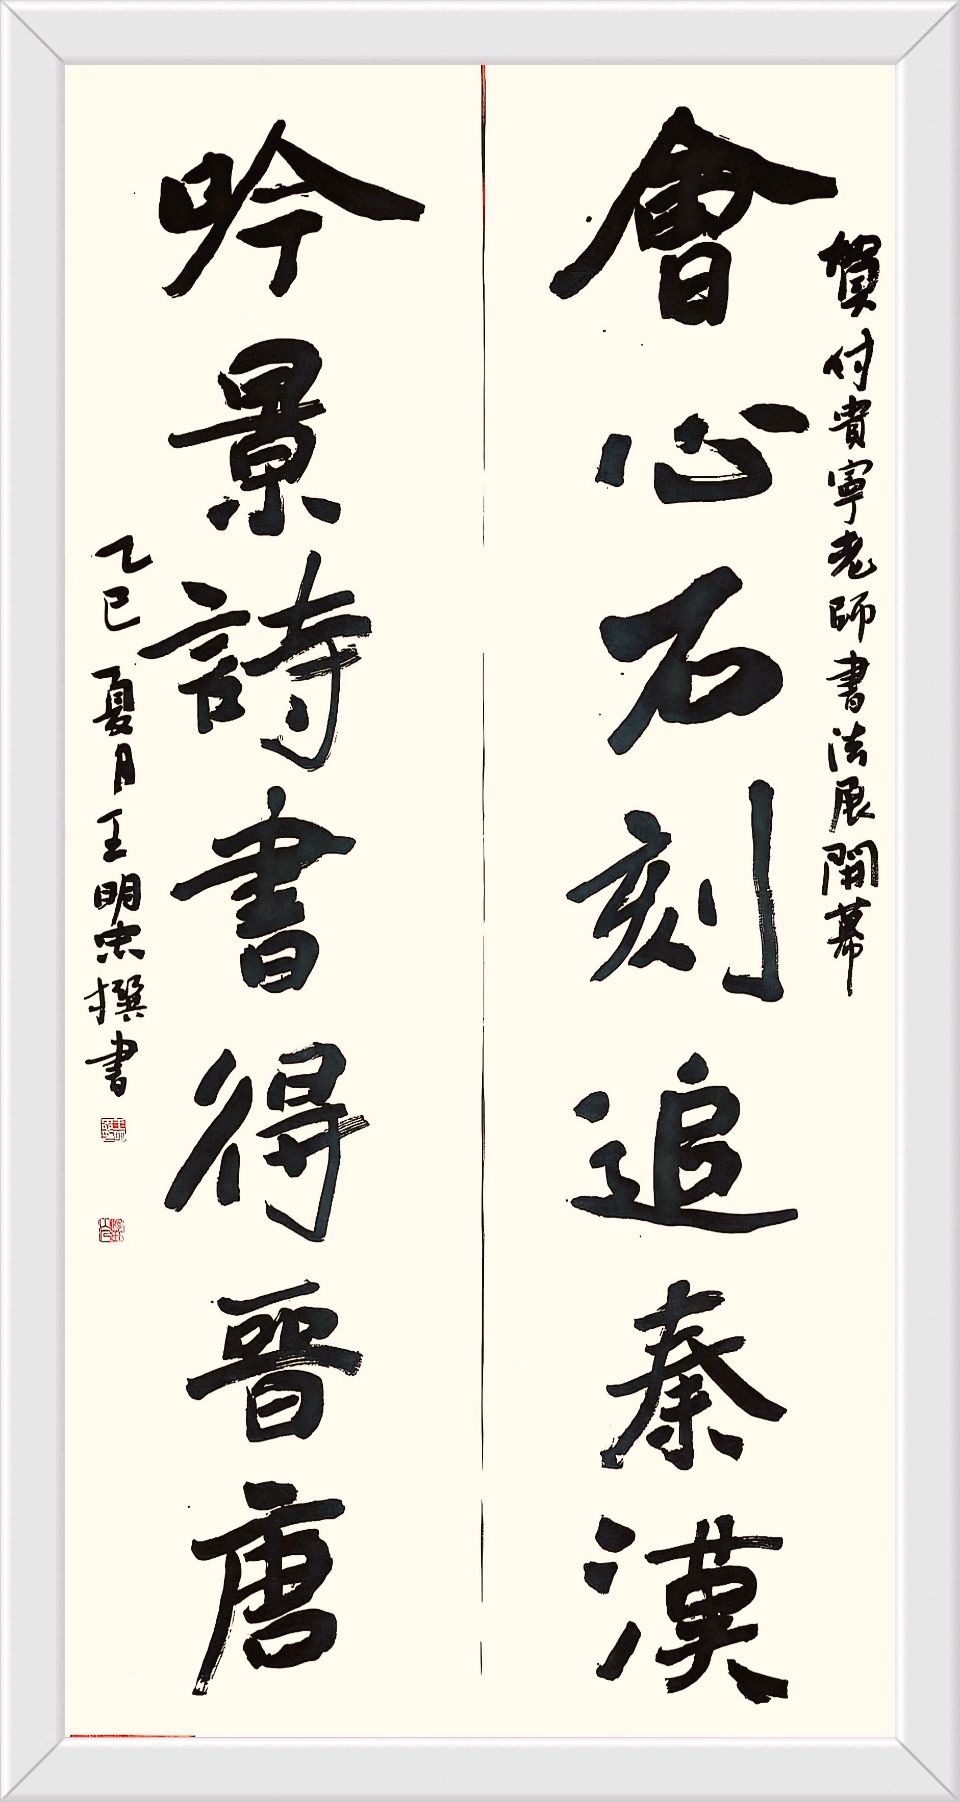 賀付貴寧老師書法展開幕
會心石刻追秦漢
吟景詩書得晉唐
乙巳夏月王明忠撰書